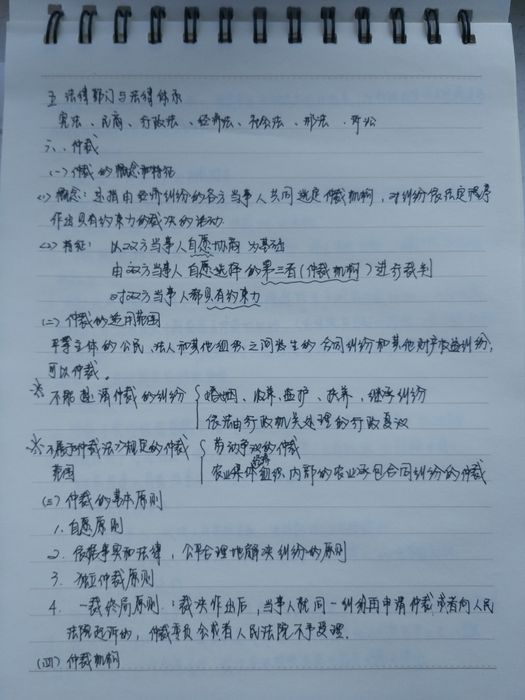 五 法律部门与法律体系
宪法、民商、行政法、经济法、社会法、刑法、诉讼
六、仲裁
(一) 仲裁的概念和特征
<1> 概念：是指由经济纠纷的各方当事人共同选定仲裁机构，对纠纷依法定程序
作出具有约束力的裁决的活动
<2> 特征：以双方当事人自愿协商为基础
由双方当事人自愿选择的第三者(仲裁机构)进行裁判
对双方当事人都具有约束力
(二) 仲裁的适用范围
平等主体的公民、法人和其他组织之间发生的合同纠纷和其他财产权益纠纷，
可以仲裁。
※ 不能提请仲裁的纠纷 { 婚姻、收养、监护、扶养、继承纠纷
依法由行政机关处理的行政争议
※ 不属于《仲裁法》规定的仲裁 { 劳动争议的仲裁
范围 农业集体经济组织内部的农业承包合同纠纷的仲裁
(三) 仲裁的基本原则
1. 自愿原则
2. 依据事实和法律，公平合理地解决纠纷的原则
3. 独立仲裁原则
4. 一裁终局原则：裁决作出后，当事人就同一纠纷再申请仲裁或者向人民
法院起诉的，仲裁委员会或者人民法院不予受理.
(四) 仲裁机构